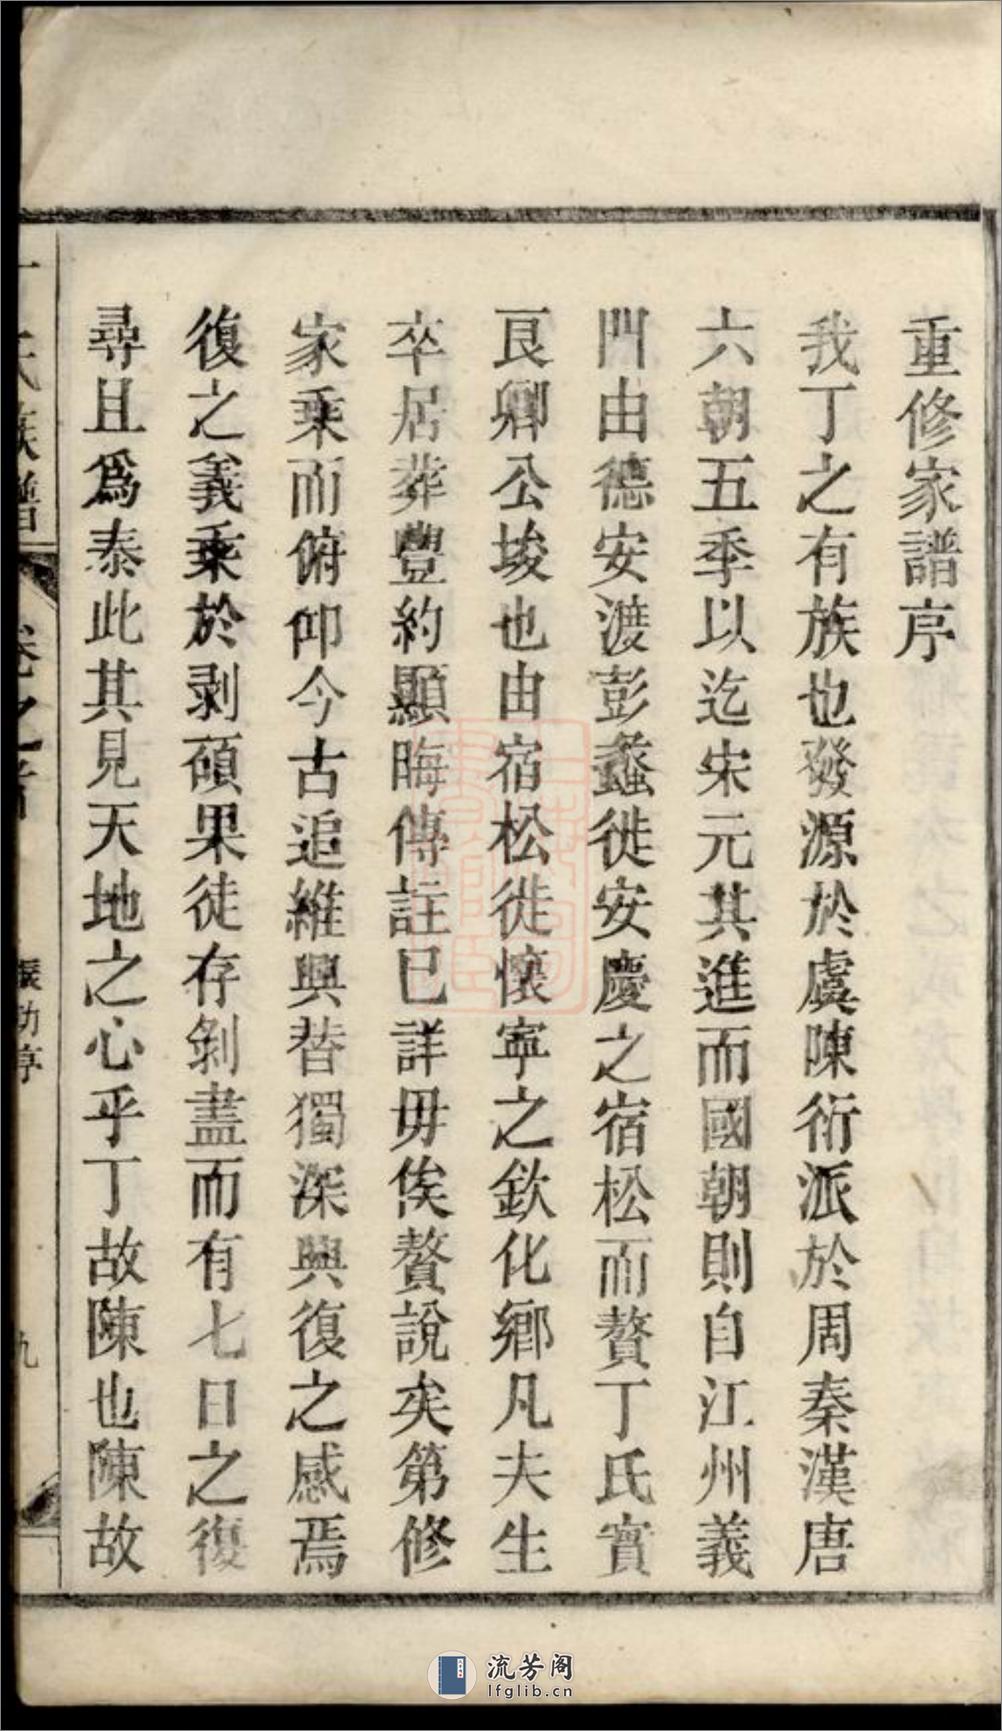 重修家譜序
我丁之有族也發源於虞陳衍派於周秦漢唐
六朝五季以迄宋元其進而國朝則自江州義
門由德安渡彭蠡徙安慶之宿松而贅丁氏實
艮卿公埈也由宿松徙懷寧之欽化鄉凡夫生
卒居葬豐約顯晦傳註已詳毋俟贅說矣第修
家乗而俯仰今古追維興替獨深興復之感焉
復之義乗於剥碩果徒存剝盡而有七日之復
尋且爲泰此其見天地之心乎丁故陳也陳故
氏族譜
卷之首
九
流芳阁
lfglib.cn